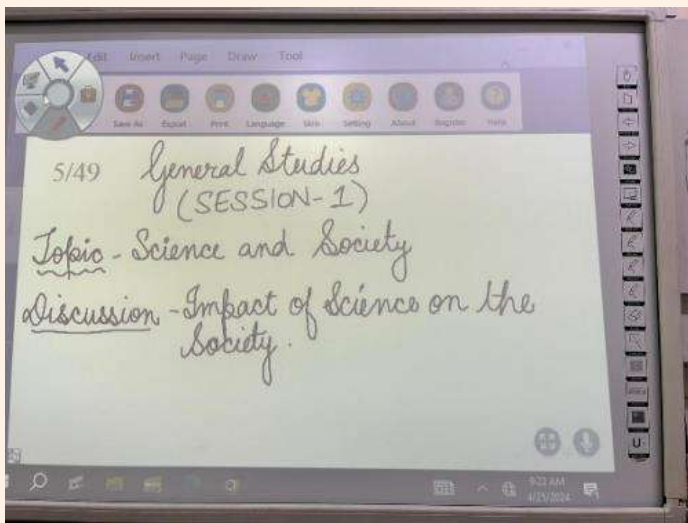 Edit Insert Page Draw Tool
Save As Export Print Language Skin Setting About Register Help
5/49 General Studies
(SESSION-1)
Topic - Science and Society
Discussion - Impact of Science on the
Society.
9:22 AM
4/25/2024